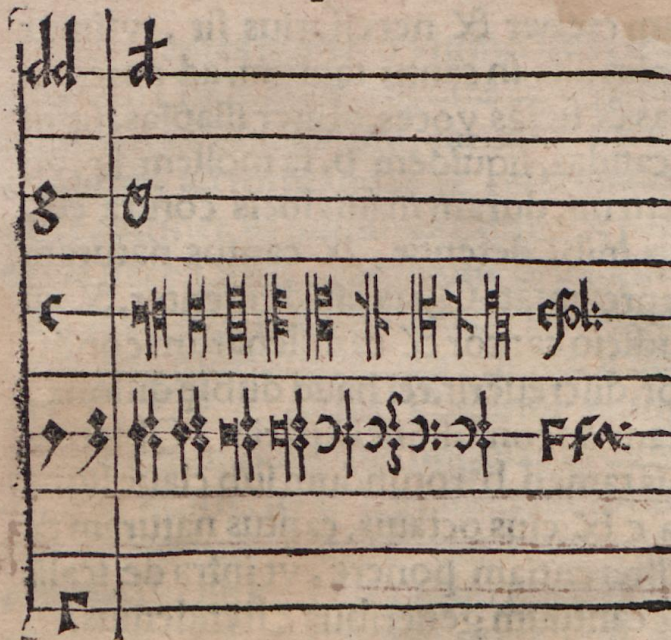 dd d
g
c csol:
F fa:
Γ